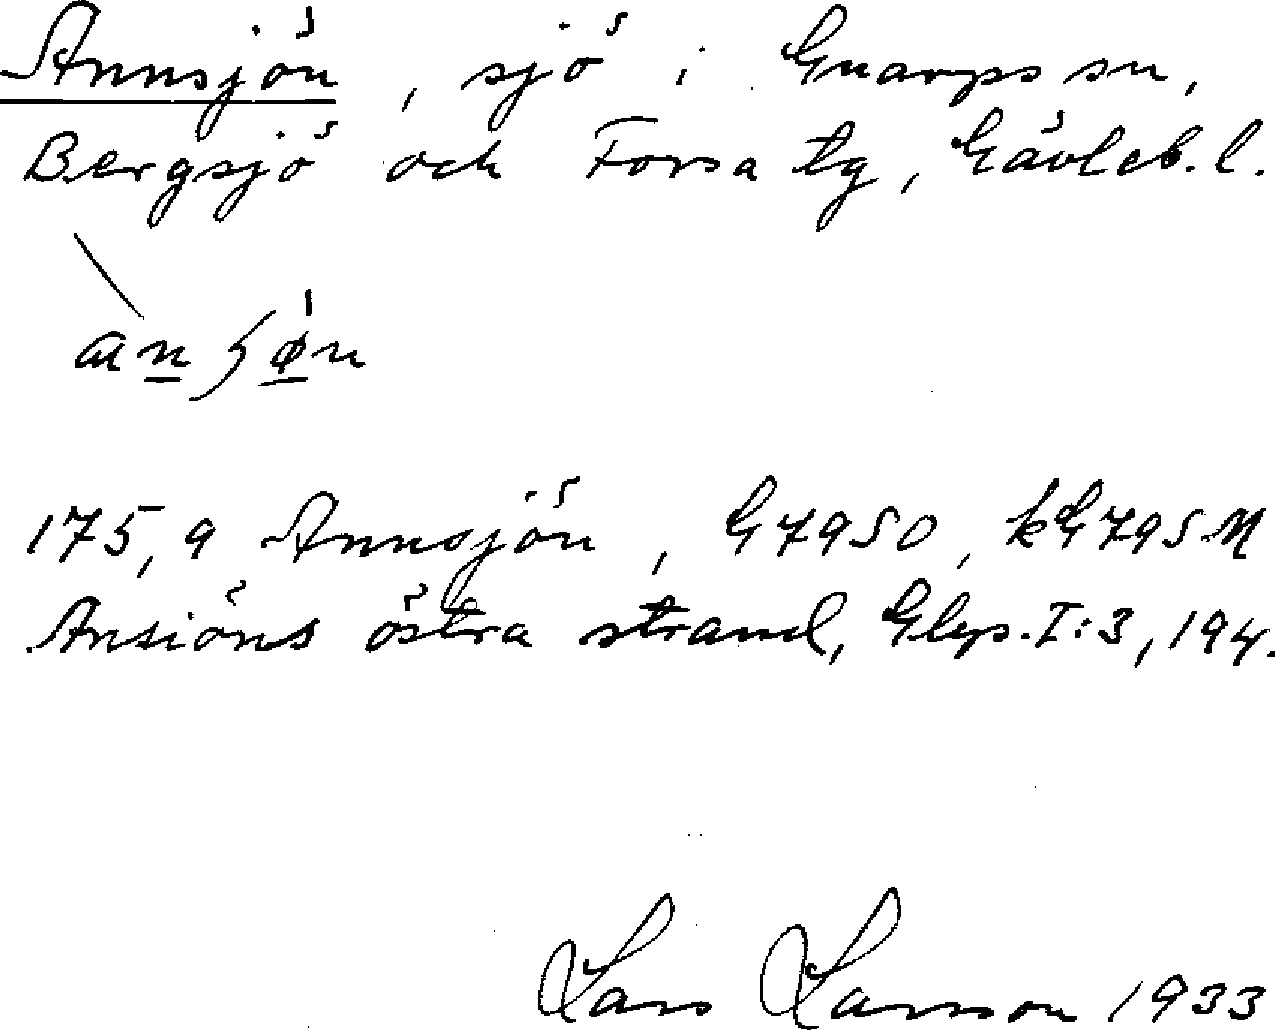 Annsjön, sjö i Gnarps sn,
Bergsjö och Forsa tg, Gävleb. l.
175, 9 Annsjön, G7950, kG795M
Ansiöns östra strand, Glgs. I:3, 194.
Lars Larsson 1933